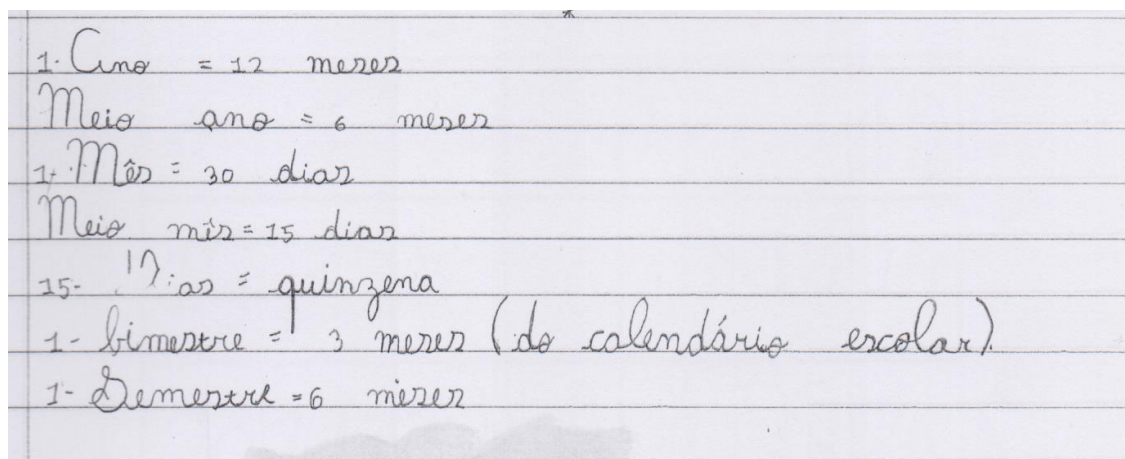 1. Ano = 12 meses
Meio ano = 6 meses
1. Mês = 30 dias
Meio mês = 15 dias
15- Dias = quinzena
1- bimestre = 3 meses (do calendário escolar).
1- Semestre = 6 meses